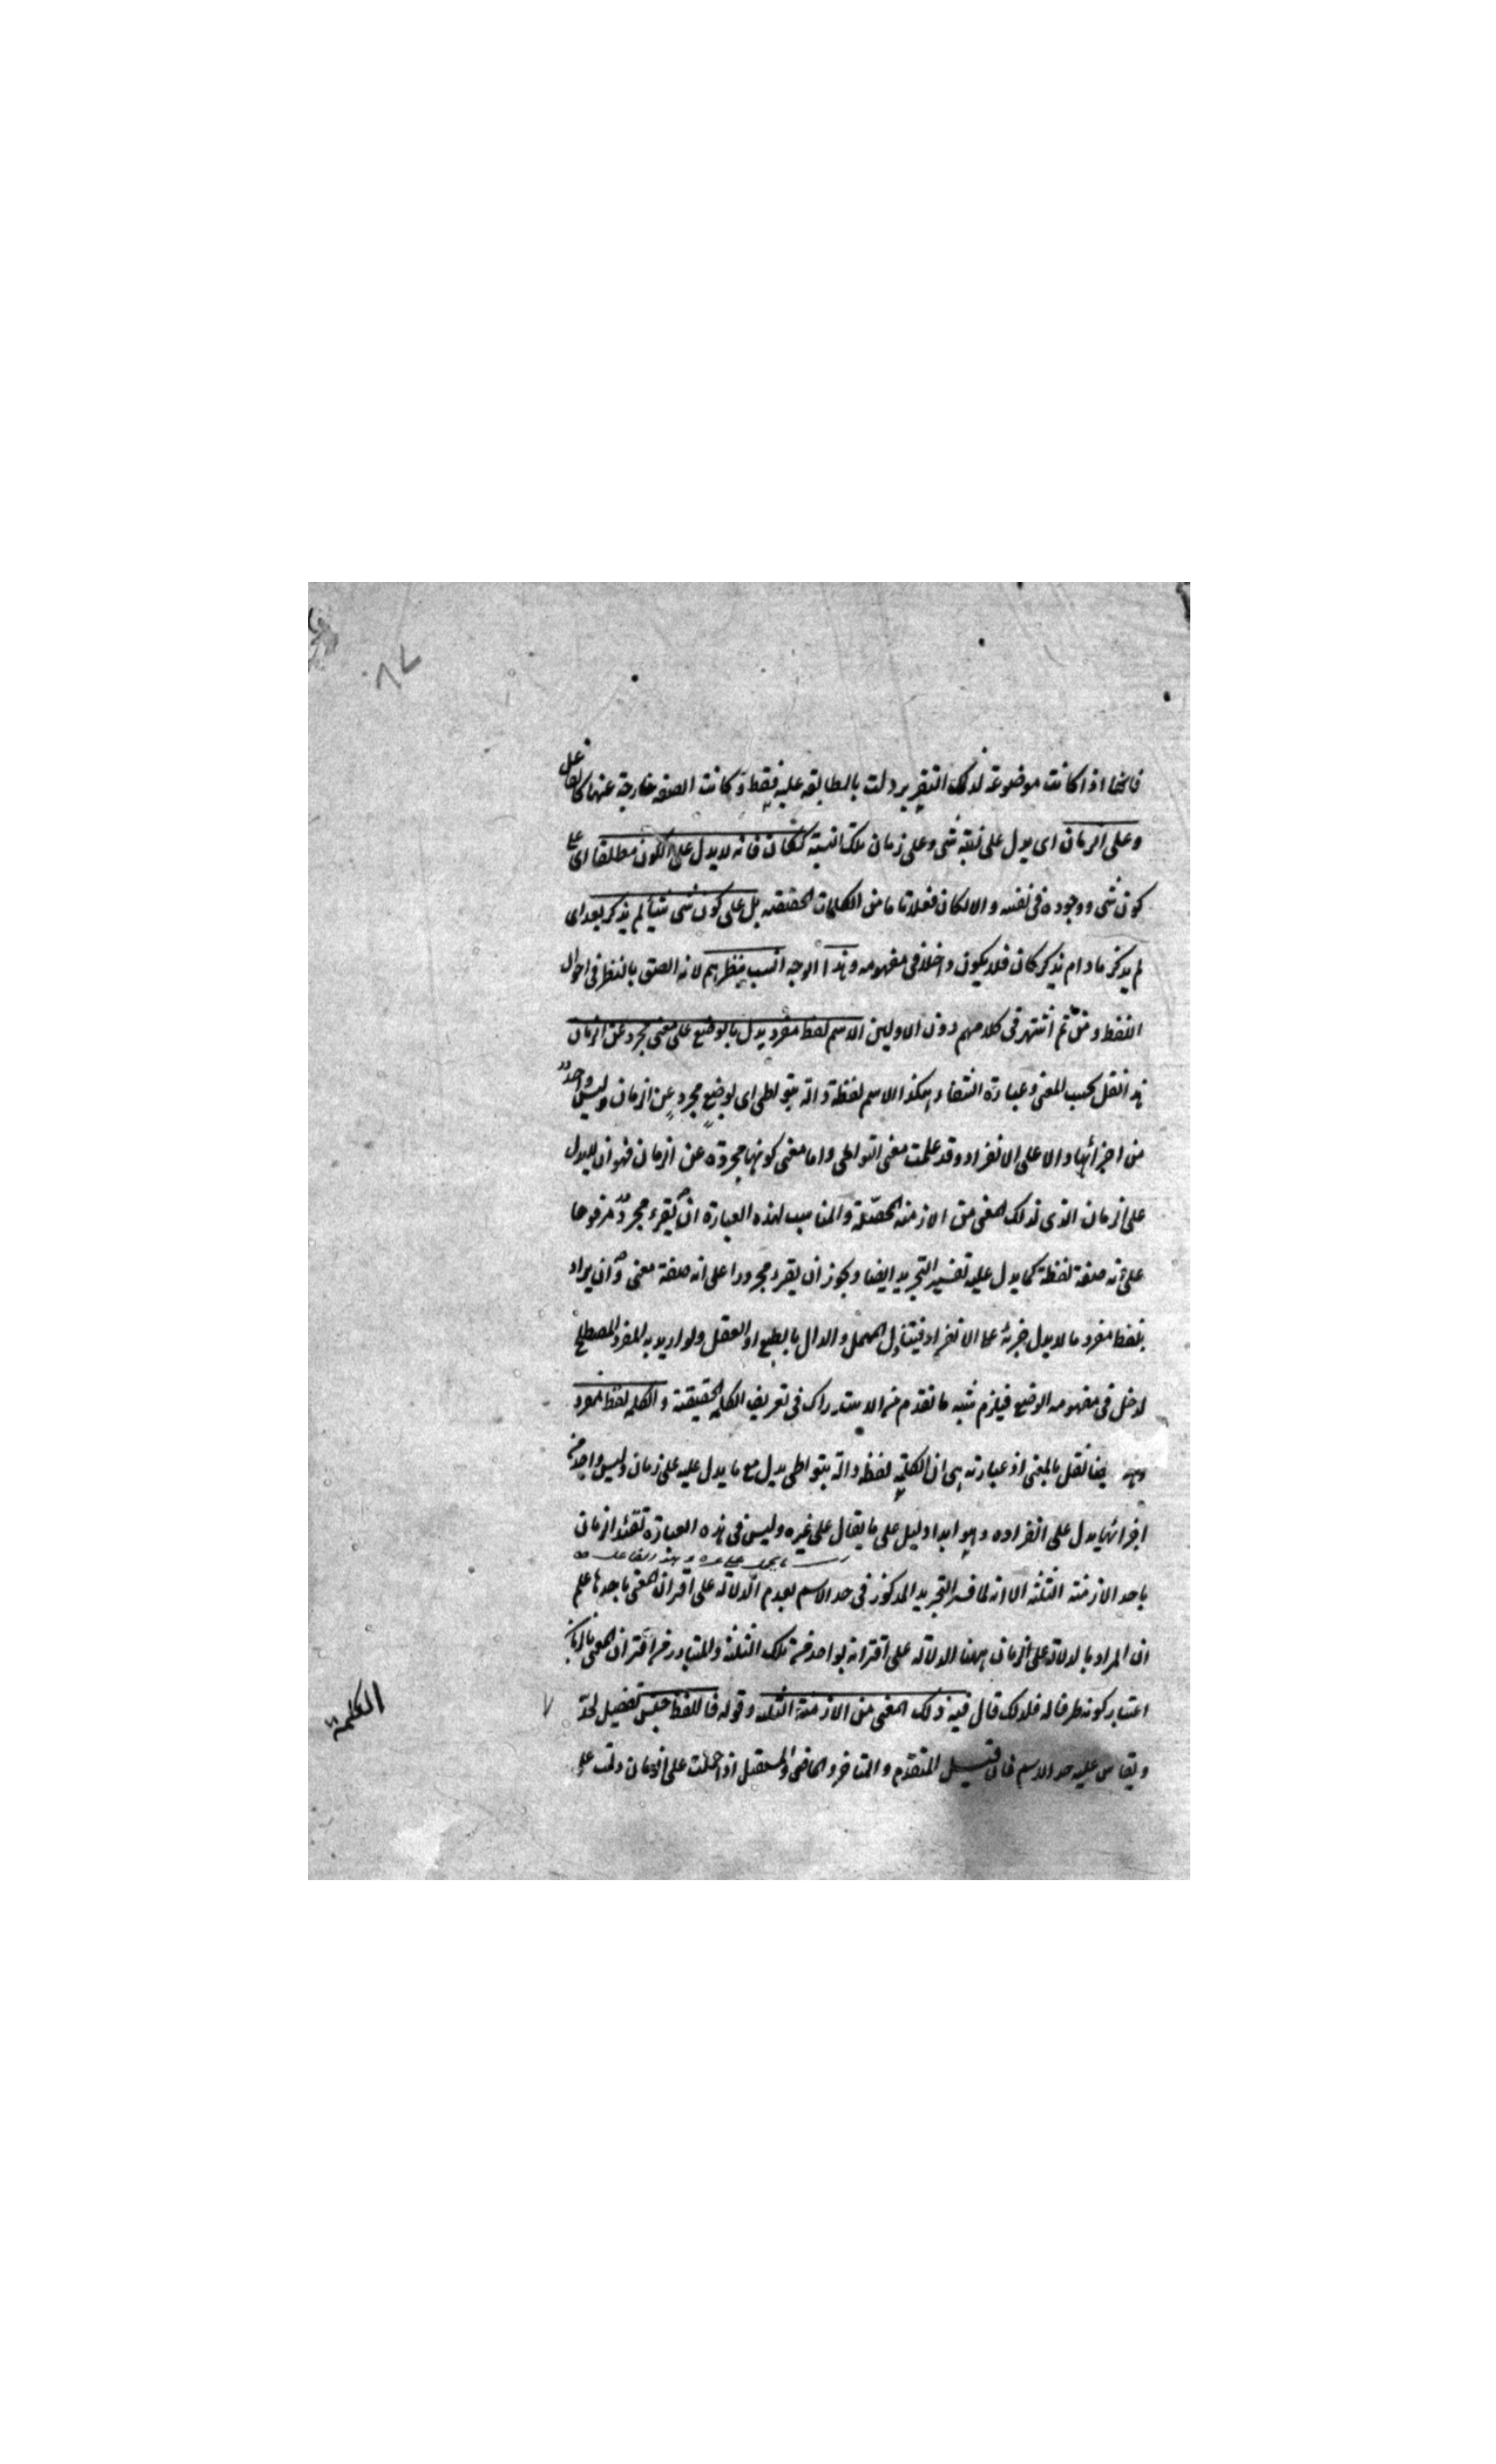 فانها اذا كانت موضوعة لذلك التقرير دلت بالمطابقة عليه فقط وكانت الصفة خارجة عنها كالفاعل
وعلى الزمان اى يدل على نسبة شى وعلى زمان تلك النسبة ككان فانه لا يدل على الكون مطلقا اى على
كون شى ووجوده فى نفسه والا لكان فعلا تاما من الكلمات الحقيقية بل على كون شى شيئا لم يذكر بعد اى
لم يذكر مادام يذكر كان فلا يكون داخلا فى مفهومه وهذا الوجه انسب بنظرهم لانه الصق بالنظر فى احوال
اللفظ ومن ثم اشتهر فى كلامهم دون الاولين الاسم لفظ مفرد يدل بالوضع على معنى مجرد عن الزمان
هذا نقل بحسب المعنى وعبارة الشفاء هكذا الاسم لفظة دالة بتواطى اى بوضع مجرد عن الزمان وليس واحد
من اجزائها دالا على الانفراد وقد علمت معنى التواطى واما معنى كونها مجردة عن الزمان فهو ان لا يدل
على الزمان الذى لذلك المعنى من الازمنة المحصلة والمناسب لهذه العبارة ان يقرء مجرد مرفوعا
على انه صفة لفظة كما يدل عليه تفسير التجريد ايضا ويجوز ان يقرء مجرورا على انه صفة معنى وان يراد
بلفظ مفرد ما لا يدل جزئه على الانفراد فيتناول المهمل والدال بالطبع او العقل ولو اريد به المفرد المصطلح
لدخل فى مفهومه الوضع فيلزم شبه ما تقدم من الاستدراك فى تعريف الكلمة الحقيقية والكلمة لفظ مفرد
وهذا ايضا نقل بالمعنى اذ عبارته هى ان الكلمة لفظة دالة بتواطى يدل مع ما يدل عليه على زمان وليس واحد من
اجزائها يدل على انفراده وهو ابدا دليل على ما يقال على غيره وليس فى هذه العبارة تقييد الزمان
باحد الازمنة الثلثة الا انه لما فسر التجريد المذكور فى حد الاسم بعدم الدلالة على اقتران المعنى باحدها علم
ان المراد بالدلالة على الزمان ههنا الدلالة على اقترانه بواحد من تلك الثلثة والمتبادر من اقتران المعنى بالزمان
اعتبار كونه ظرفا له فلذلك قال فيه ذلك المعنى من الازمنة الثلثة وقوله فاللفظ جنس تفصيل لحد
الكلمة
ويقاس عليه حد الاسم فان قيل المتقدم والمتاخر والماضى والمستقبل اذا حملت على الزمان دلت على